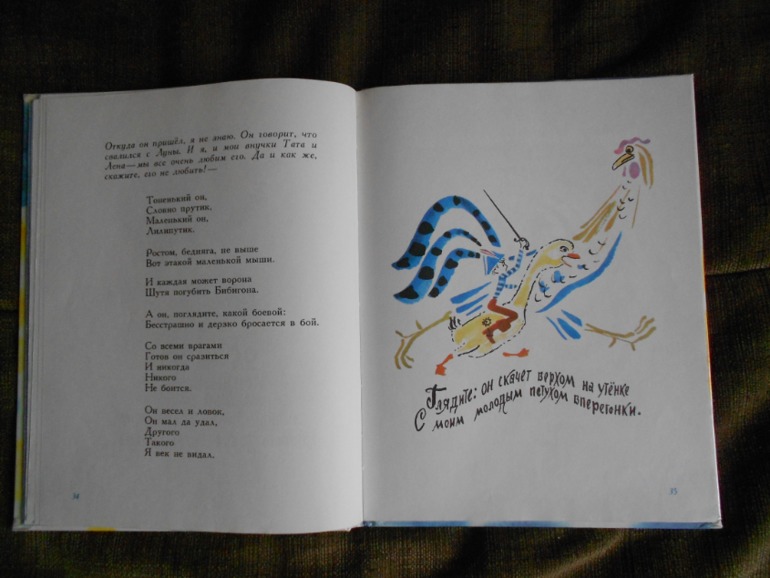 Откуда он пришёл, я не знаю. Он говорит, что
свалился с Луны. И я, и мои внучки Тата и
Лена—мы все очень любим его. Да и как же,
скажите, его не любить!—
Тоненький он,
Словно прутик,
Маленький он,
Лилипутик.
Ростом, бедняга, не выше
Вот этакой маленькой мыши.
И каждая может ворона
Шутя погубить Бибигона.
А он, поглядите, какой боевой:
Бесстрашно и дерзко бросается в бой.
Со всеми врагами
Готов он сразиться
И никогда
Никого
Не боится.
Он весел и ловок,
Он мал да удал,
Другого
Такого
Я век не видал.
34
Глядите: он скачет верхом на утёнке
С моим молодым петухом вперегонки.
35